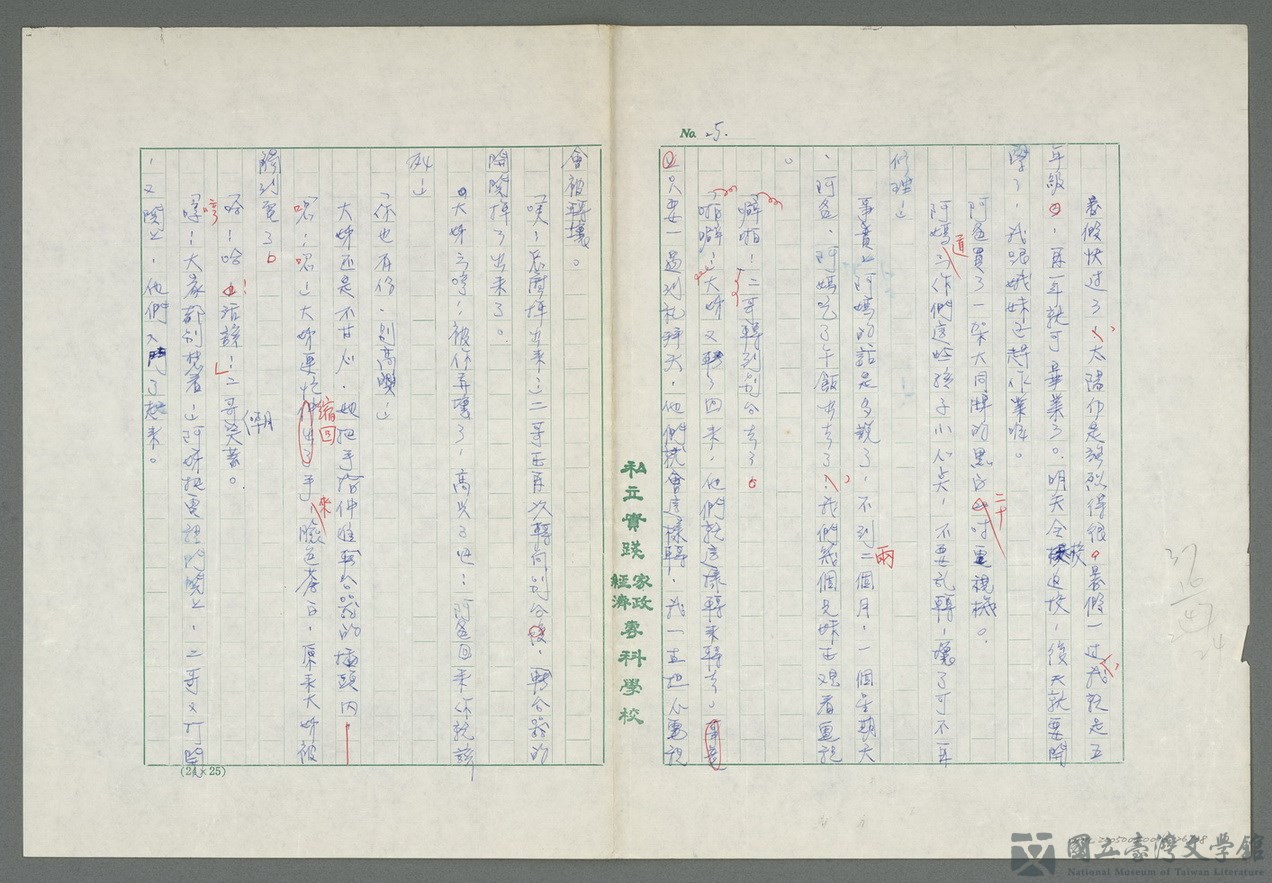 No. 25.
暑假快過了,太陽仍是強烈得很。暑假一過我就是五
年級,再一年就可畢業了。明天全校返校,後天就要開
學了,我跟娥妹正趕作業呢。
阿爸買了一架大同牌的黑白二十吋電視機。
阿媽道:你們這些孩子小心點,不要亂轉,壞了可不再
修理」
事實上阿媽的話是多餘了,不到兩個月,一個星期天
,阿爸、阿媽吃了午飯出去了,我們幾個兄妹正觀看電視
。
「噼啪!」二哥轉到別台去了。
「啪噼!」大姊又轉了回來,他們就這樣轉來轉去,
只要一遇到禮拜天,他們就會這樣轉,我一直担心電視
會被轉壞。
「噗!」忽磨掉出來」二哥正再次轉向別台後,轉台器的
開關掉了出來了。
「大姊云哼!被你弄壞了,高興了吧!阿爸回來你就該
死」
「你也有份,別高興」
大姊還是不甘心,她把手指伸進轉台器的插頭內
「喔!喔」大姊更快縮回了手來,臉色蒼白,原來大姊被
觸到電了。
「哈!哈!活該!」二哥笑著。
「哼!大家都別想看」阿姊把電視機關上,二哥又打開
,又關上,他們又鬧了起來。
私立實踐家政經濟專科學校
(24×25)
國立臺灣文學館
National Museum of Taiwan Literature